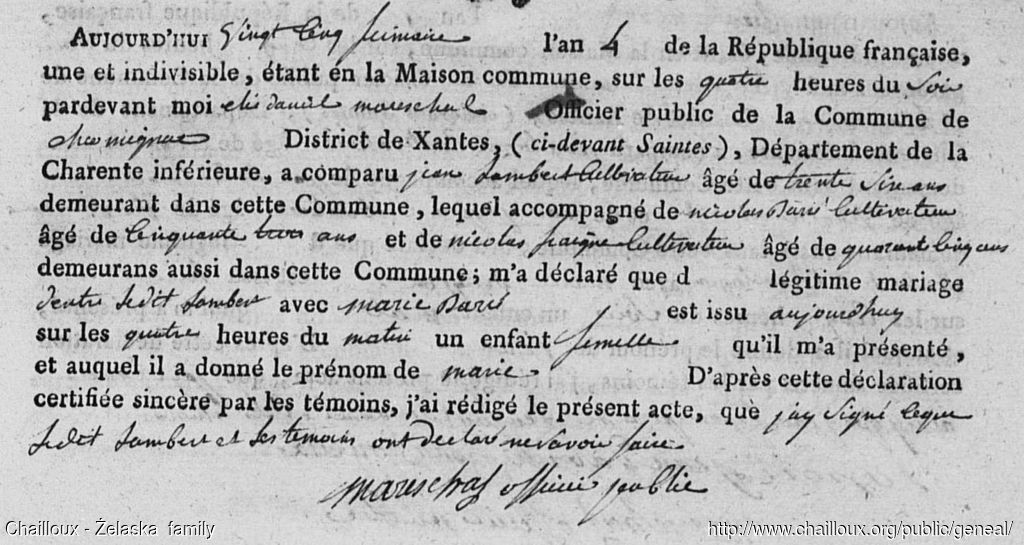 AUJOURD'HUI Vingt Cinq frimaire l'an 4 de la République française,
une et indivisible, étant en la Maison commune, sur les quatre heures du Soir
pardevant moi elis daniel mareschal Officier public de la Commune de
District de Xantes, (ci-devant Saintes), Département de la
Charente inférieure, a comparu jean Lambert Cultivateur âgé de trente Six ans
demeurant dans cette Commune, lequel accompagné de nicolas Darié Cultivateur
âgé de Cinquante trois ans et de nicolas Cultivateur âgé de quarant Cinq ans
demeurans aussi dans cette Commune; m'a déclaré que d légitime mariage
dentre Ledit Lambert avec marie Darié est issu aujourdhuy
sur les quatre heures du matin un enfant femelle qu'il m'a présenté,
et auquel il a donné le prénom de marie D'après cette déclaration
certifiée sincère par les témoins, j'ai rédigé le présent acte, que jay Signé Ceque
Ledit Lambert et Ses temoins ont declaré ne Savoir faire
mareschal officier public
Chailloux - Żelaska family
http://www.chailloux.org/public/geneal/